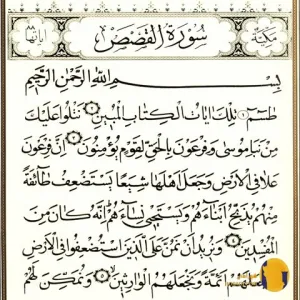 مكية سورة القصص آياتها ٨٨
بسم الله الرحمن الرحيم
طسم ١ تلك آيات الكتاب المبين ٢ نتلوا عليك
من نبإ موسى وفرعون بالحق لقوم يؤمنون ٣ إن فرعون
علا في الأرض وجعل أهلها شيعا يستضعف طائفة
منهم يذبح أبناءهم ويستحيي نساءهم إنه كان من
المفسدين ٤ ونريد أن نمن على الذين استضعفوا في الأرض
ونجعلهم أئمة ونجعلهم الوارثين ٥ ونمكن لهم